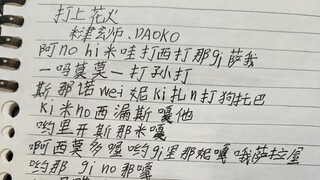 打上花火
米津玄师、DAOKO
阿no hi米哇打西打那gi萨我
一吗莫莫一打孙打
斯那诺wei妮ki扎n打狗托巴
ki米no西漏斯嘎他
哟里开斯那米嘎
啊西莫多喔哟gi里那根嘎哦萨拉屋
哟那gi no那嘎